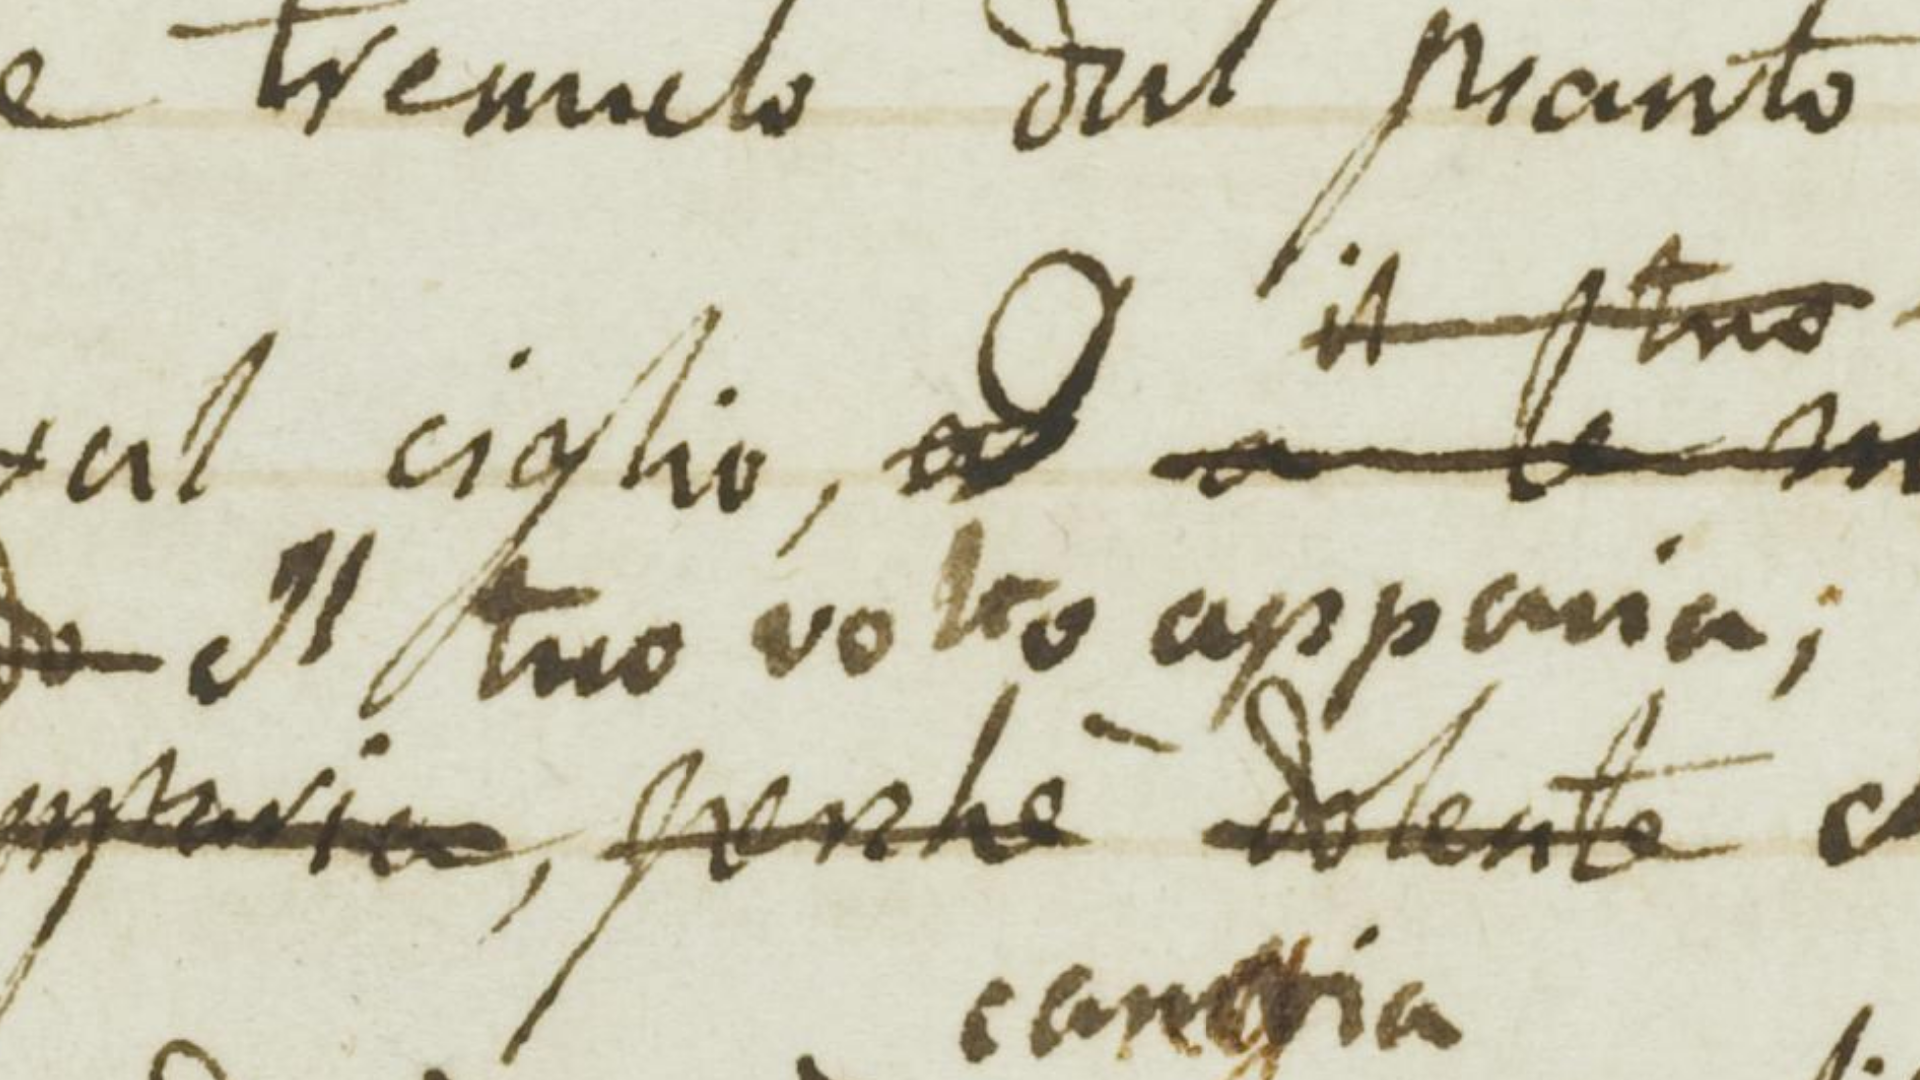 e tremulo dal pianto
il tuo
sul ciglio, a le
Il tuo volto apparia;
apparia, perchè dolente
cangia